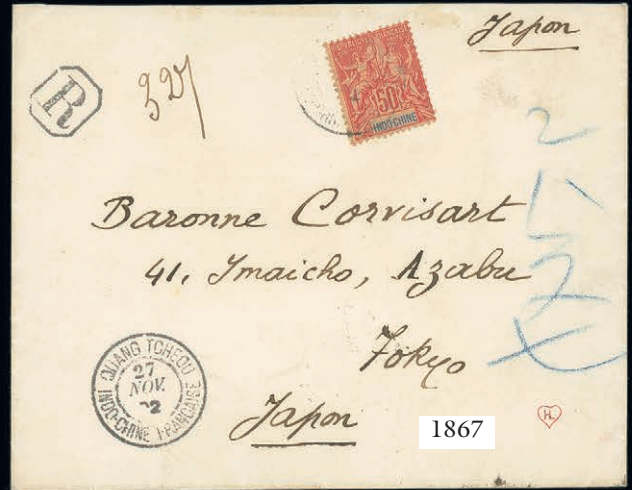 Japon
R
50c
INDO-CHINE
Baronne Corvisart
41, Imaicho, Azabu
Tokyo
Japon
QUANG TCHEOU
27
NOV.
INDO-CHINE FRANÇAISE
1867